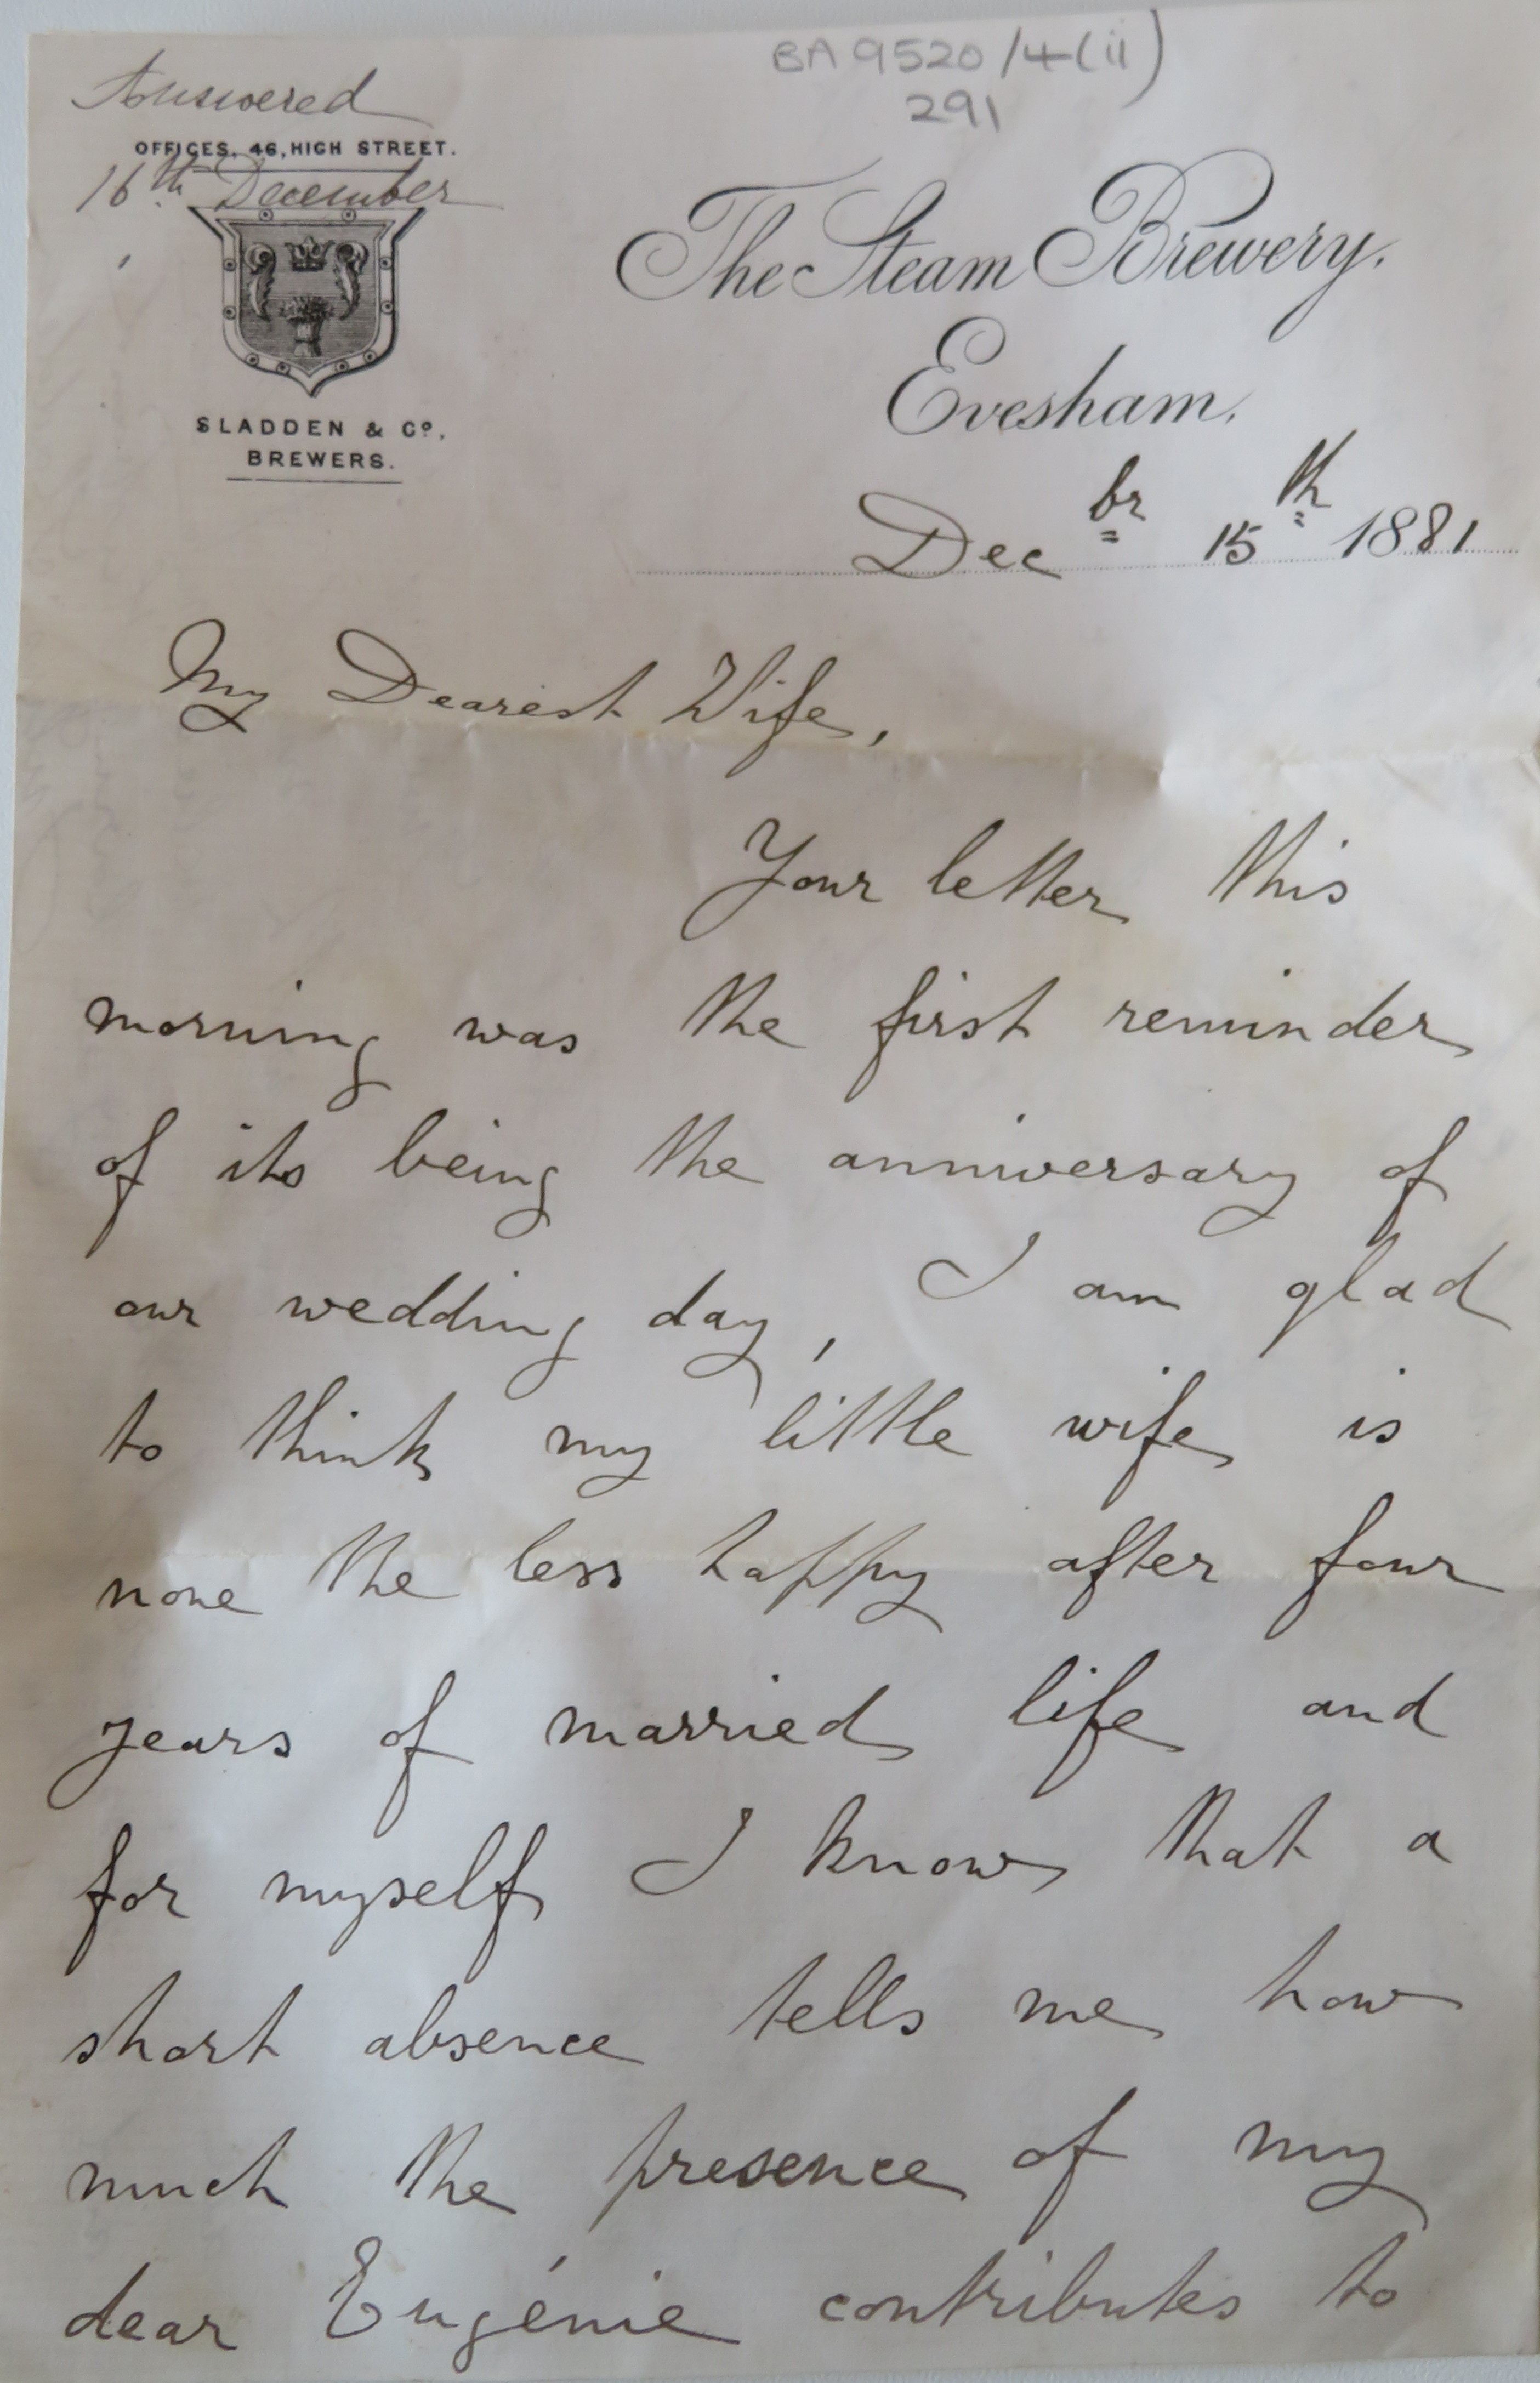 BA 9520/4(ii)
291
Answered
OFFICES, 46, HIGH STREET.
16th December
SLADDEN & Co.,
BREWERS.
The Steam Brewery,
Evesham,
Decbr 15th 1881
My Dearest Wife,
Your letter this
morning was the first reminder
of its being the anniversary of
our wedding day, I am glad
to think my little wife is
none the less happy after four
years of married life and
for myself I know that a
short absence tells me how
much the presence of my
dear Eugénie contributes to